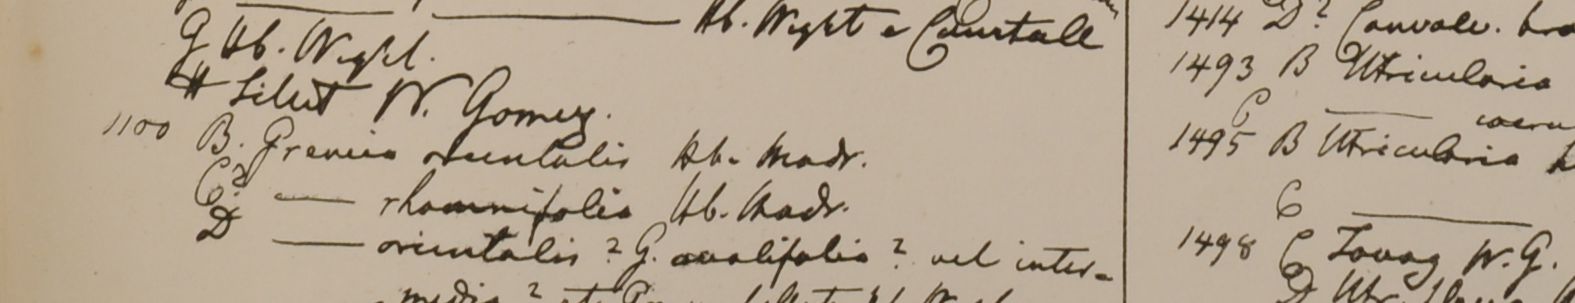 Hb. Wight e Courtall
G Hb. Wight.
H Silhet W. Gomez.
1100 B. Grewia orientalis Hb. Madr.
C? — rhamnifolia Hb. Madr.
D — orientalis? G. ovalifolia? vel inter-
media?
1414 D? Convolv.
1493 B Utricularia
C —
1495 B Utricularia
C —
1498 C Tavoy W.G.
D